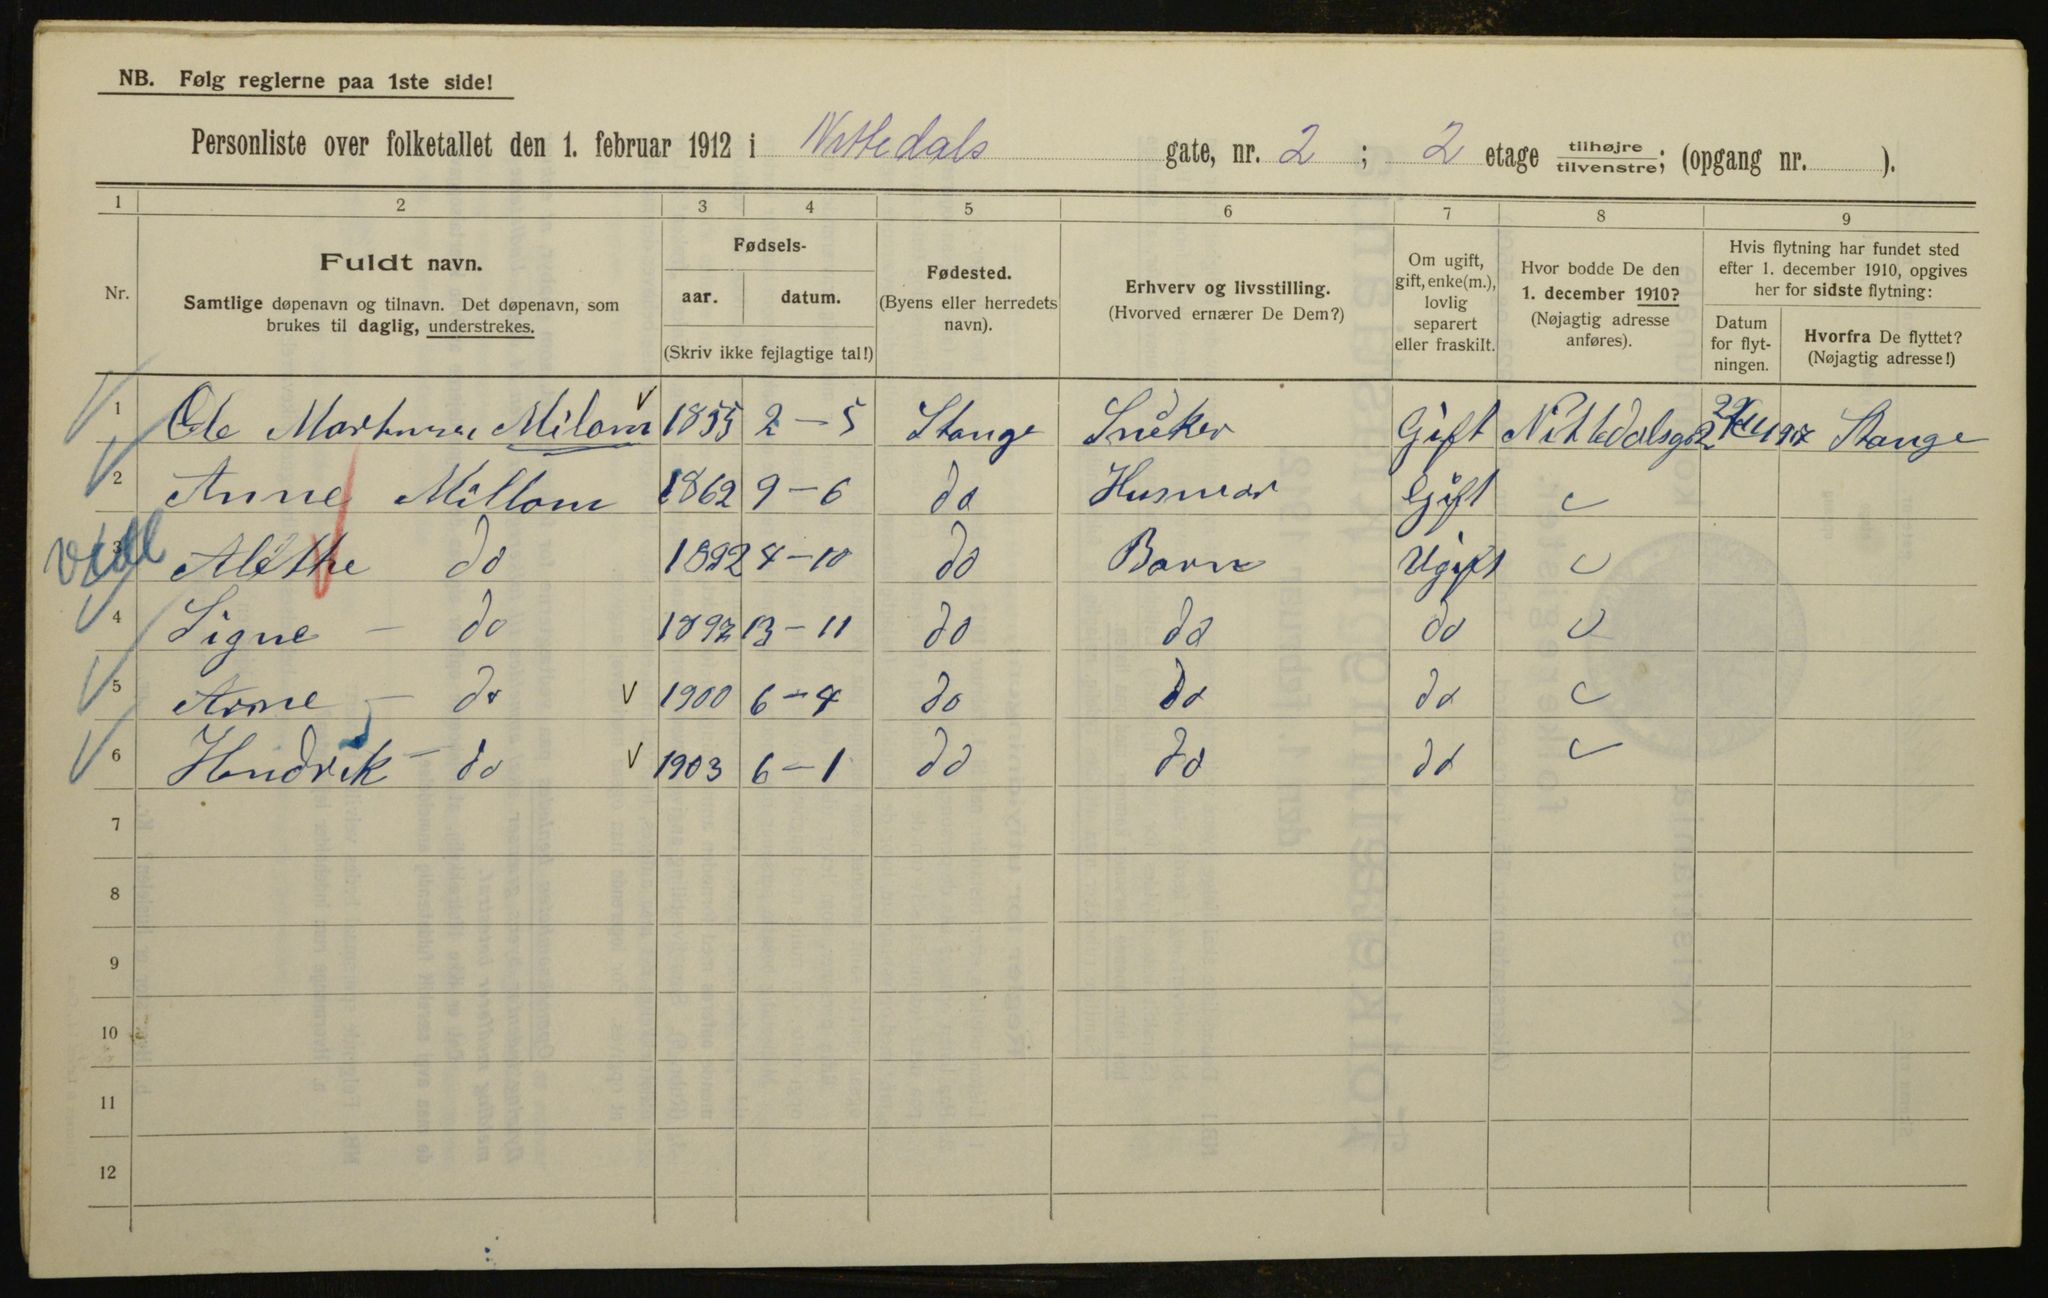 NB. Følg reglerne paa 1ste side!
Personliste over folketallet den 1. februar 1912 i Nittedals gate, nr. 2 ; 2 etage tilhøjre / tilvenstre; (opgang nr. ).
1 2 3 4 5 6 7 8 9
Nr.
Fuldt navn.
Samtlige døpenavn og tilnavn. Det døpenavn, som
brukes til daglig, understrekes.
Fødsels-
aar. datum.
(Skriv ikke fejlagtige tal!)
Fødested.
(Byens eller herredets
navn).
Erhverv og livsstilling.
(Hvorved ernærer De Dem?)
Om ugift,
gift, enke(m.),
lovlig
separert
eller fraskilt.
Hvor bodde De den
1. december 1910?
(Nøjagtig adresse
anføres).
Hvis flytning har fundet sted
efter 1. december 1910, opgives
her for sidste flytning:
Datum
for flyt-
ningen.
Hvorfra De flyttet?
(Nøjagtig adresse!)
1 Ole Martinsen Milom 1855 2-5 Stange Sneker Gift Nittedalsg 2 Stange
2 Anne Millom 1862 9-6 do Husmor Gift
3 Aléthe do 1892 4-10 do Barn Ugift
4 Signe - do 1897 13-11 do do do
5 Arne - do 1900 6-4 do do do
6 Hendrik - do 1903 6-1 do do do
7
8
9
10
11
12